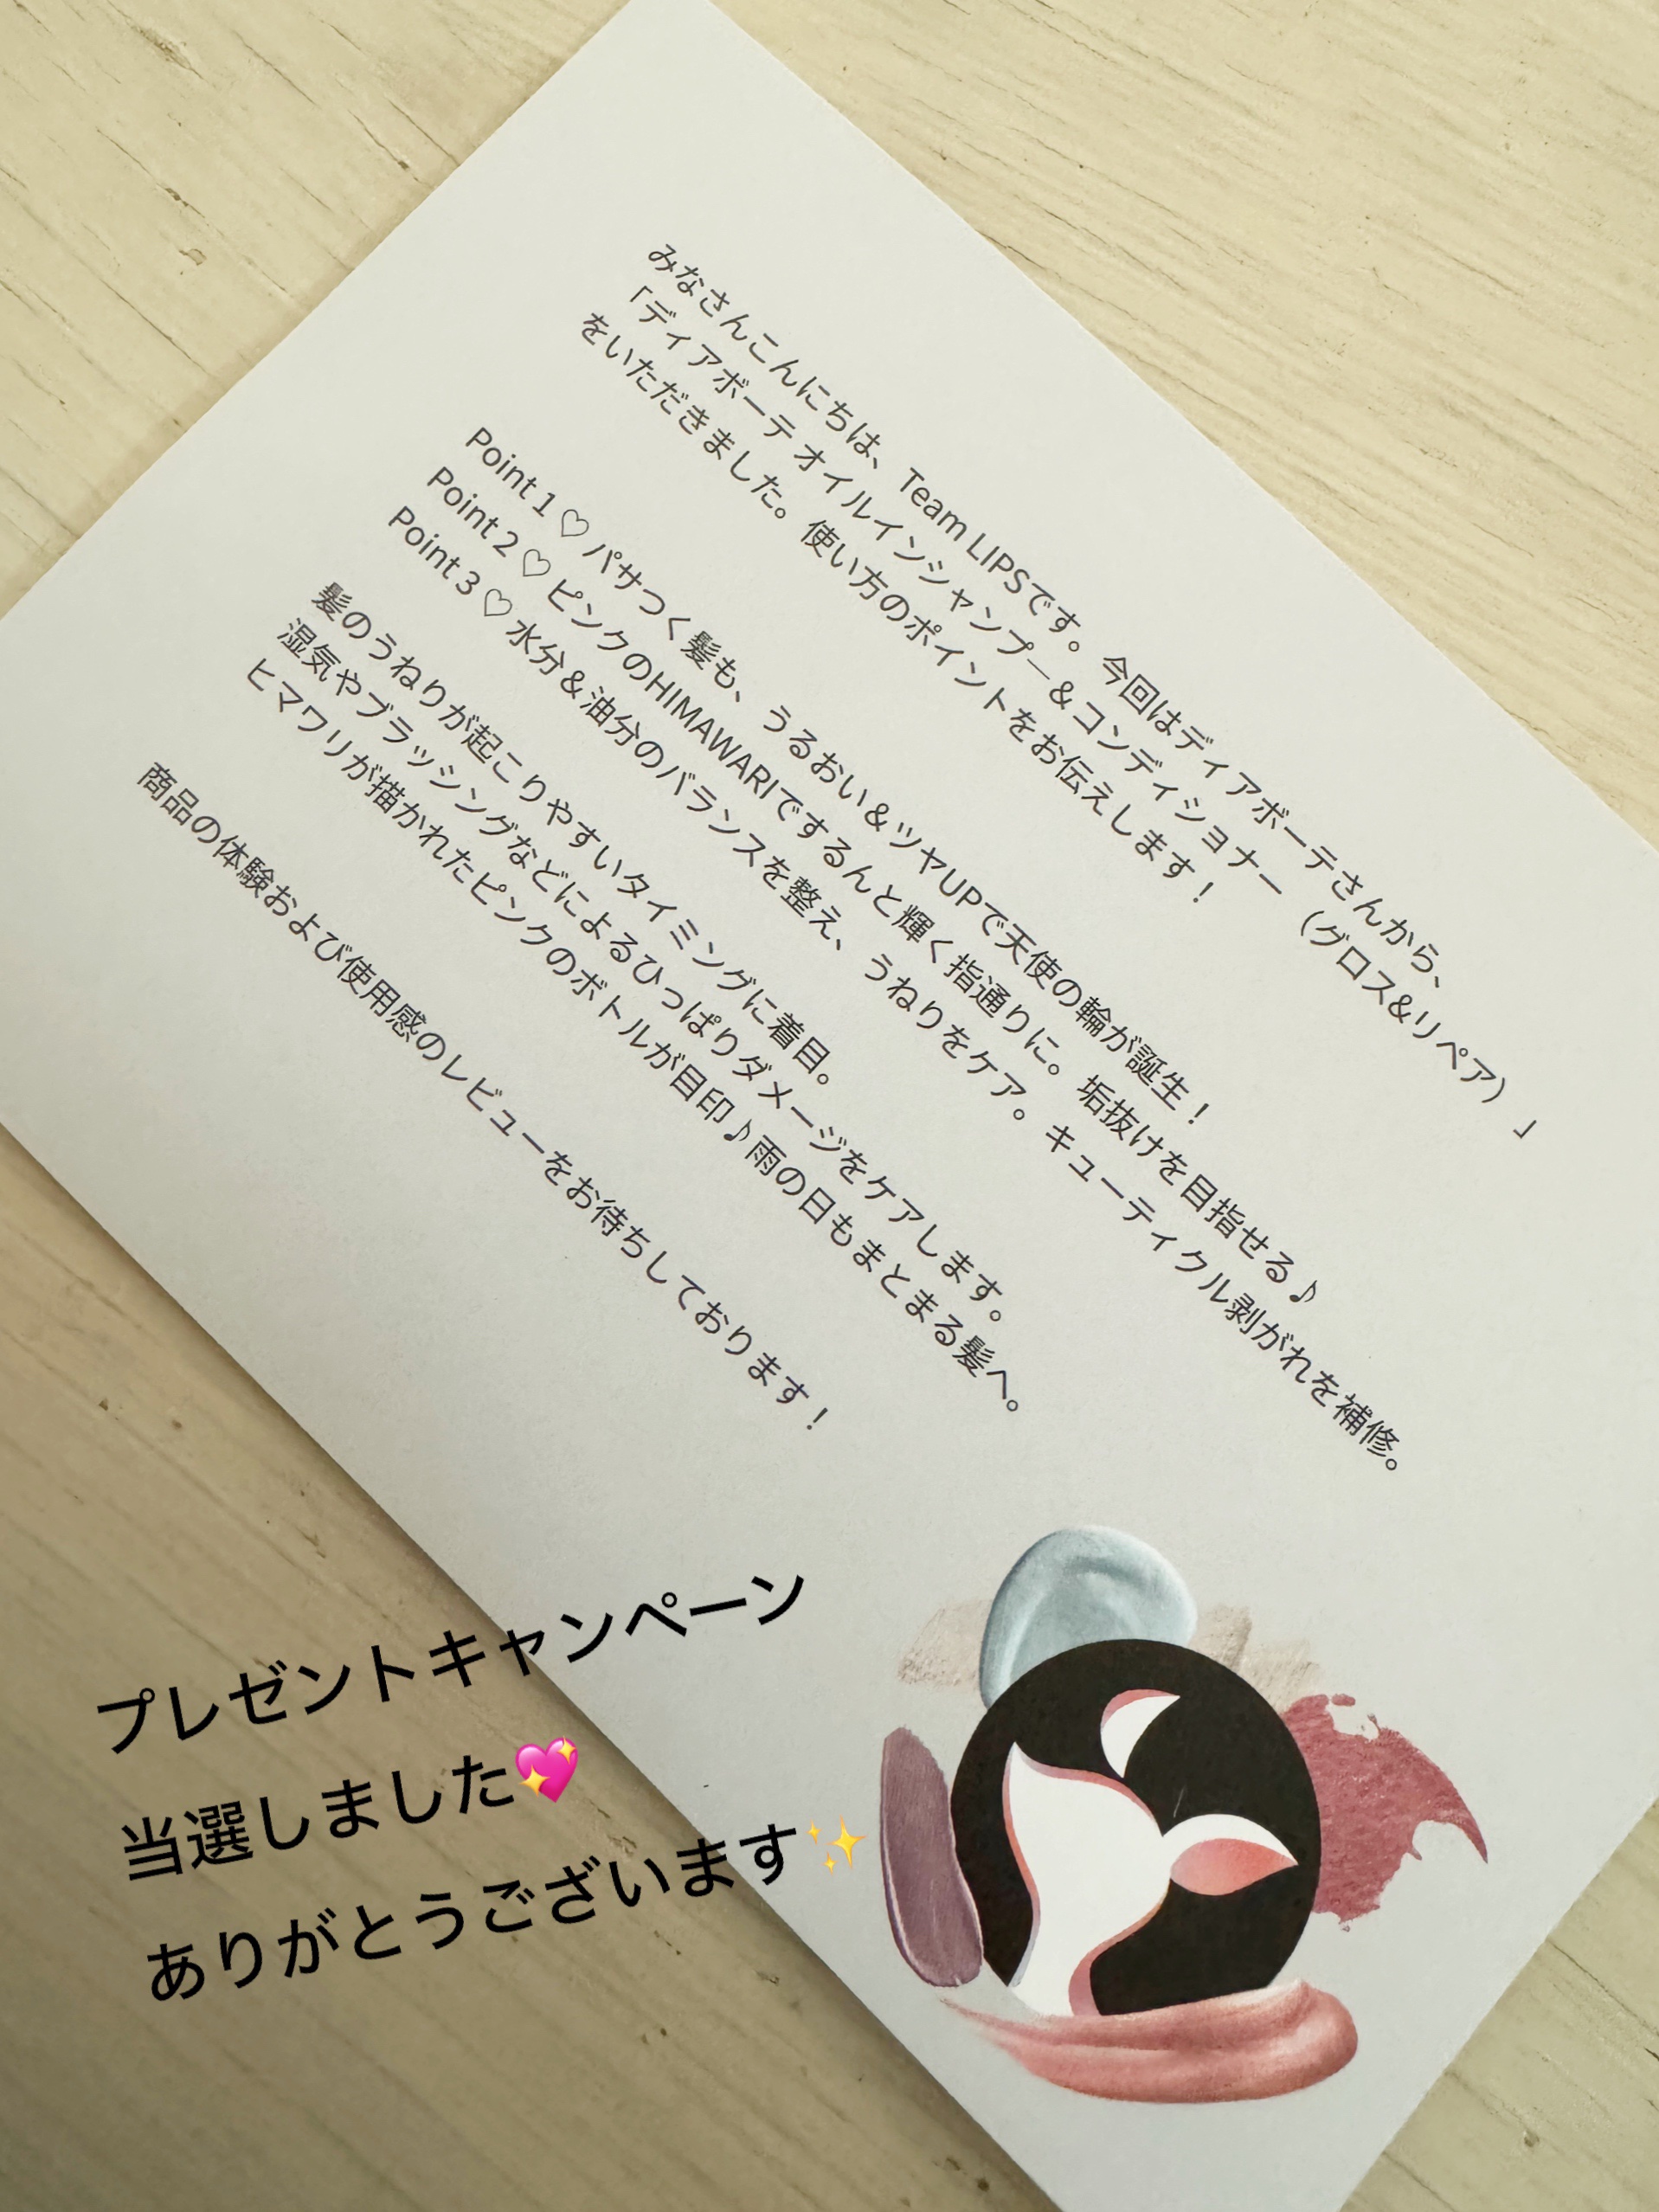 みなさんこんにちは、Team LIPSです。今回はディアボーテさんから、
「ディアボーテ オイルインシャンプー&コンディショナー （グロス&リペア）」
をいただきました。使い方のポイントをお伝えします！
Point 1 ♡ パサつく髪も、うるおい＆ツヤUPで天使の輪が誕生！
Point 2 ♡ ピンクのHIMAWARIでするんと輝く指通りに。垢抜けを目指せる♪
Point 3 ♡ 水分＆油分のバランスを整え、うねりをケア。キューティクル剥がれを補修。
髪のうねりが起こりやすいタイミングに着目。
湿気やブラッシングなどによるひっぱりダメージをケアします。
ヒマワリが描かれたピンクのボトルが目印♪雨の日もまとまる髪へ。
商品の体験および使用感のレビューをお待ちしております！
プレゼントキャンペーン
当選しました💖
ありがとうございます✨